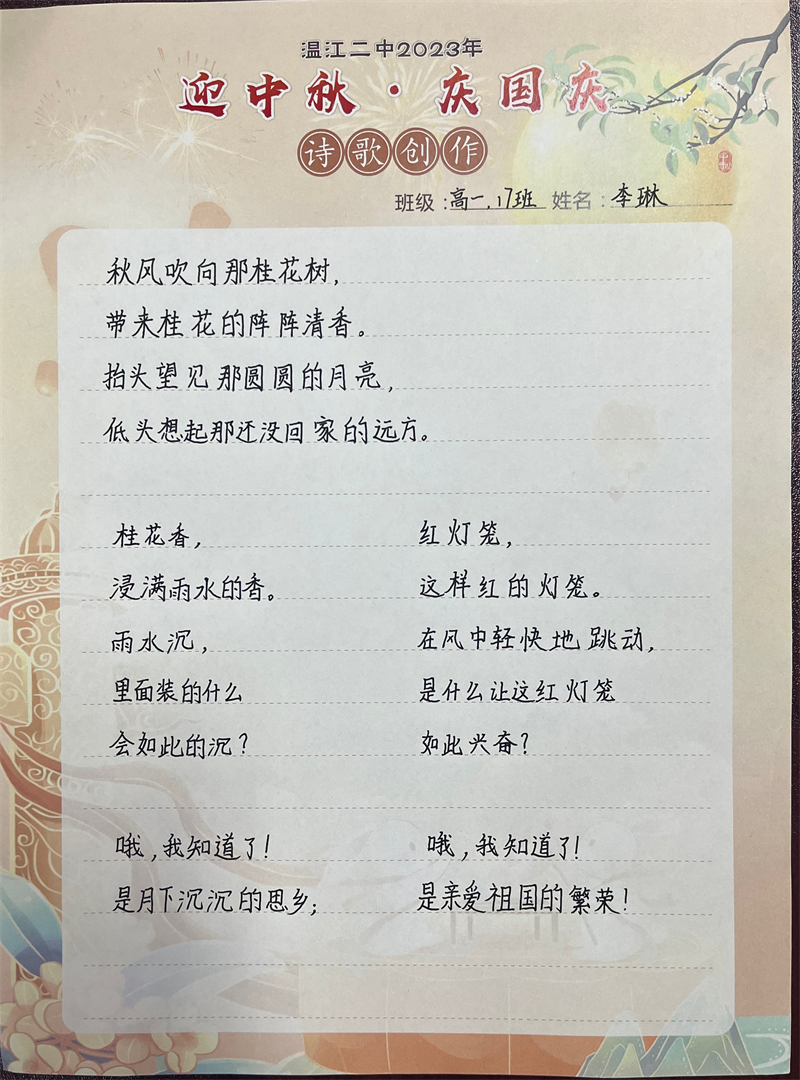 温江二中2023年
迎中秋·庆国庆
诗歌创作
班级：高一.17班 姓名：李琳
秋风吹向那桂花树，
带来桂花的阵阵清香。
抬头望见那圆圆的月亮，
低头想起那还没回家的远方。
桂花香，
浸满雨水的香。
雨水沉，
里面装的什么
会如此的沉？
哦，我知道了！
是月下沉沉的思乡；
红灯笼，
这样红的灯笼。
在风中轻快地跳动，
是什么让这红灯笼
如此兴奋？
哦，我知道了！
是亲爱祖国的繁荣！